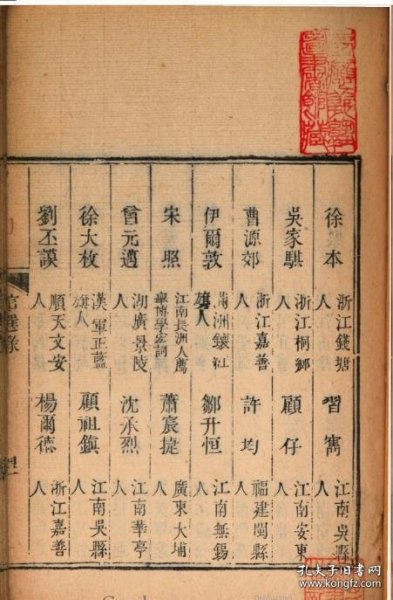 徐本 浙江錢塘人 習寯 江南吳縣人
吳家騏 浙江桐鄉人 顧仔 江南安東人
曹源郊 浙江嘉善人 許均 福建閩縣人
伊爾敦 滿洲鑲紅旗人 鄒升恒 江南無錫人
宋照 江南長洲人薦舉博學宏詞 蕭宸捷 廣東大埔人
曾元邁 湖廣景陵人 沈承烈 江南華亭人
徐大枚 漢軍正藍旗人 顧祖鎮 江南吳縣人
劉丕謨 順天文安人 楊爾德 浙江嘉善人
孔夫子旧书网
www.kongfz.com